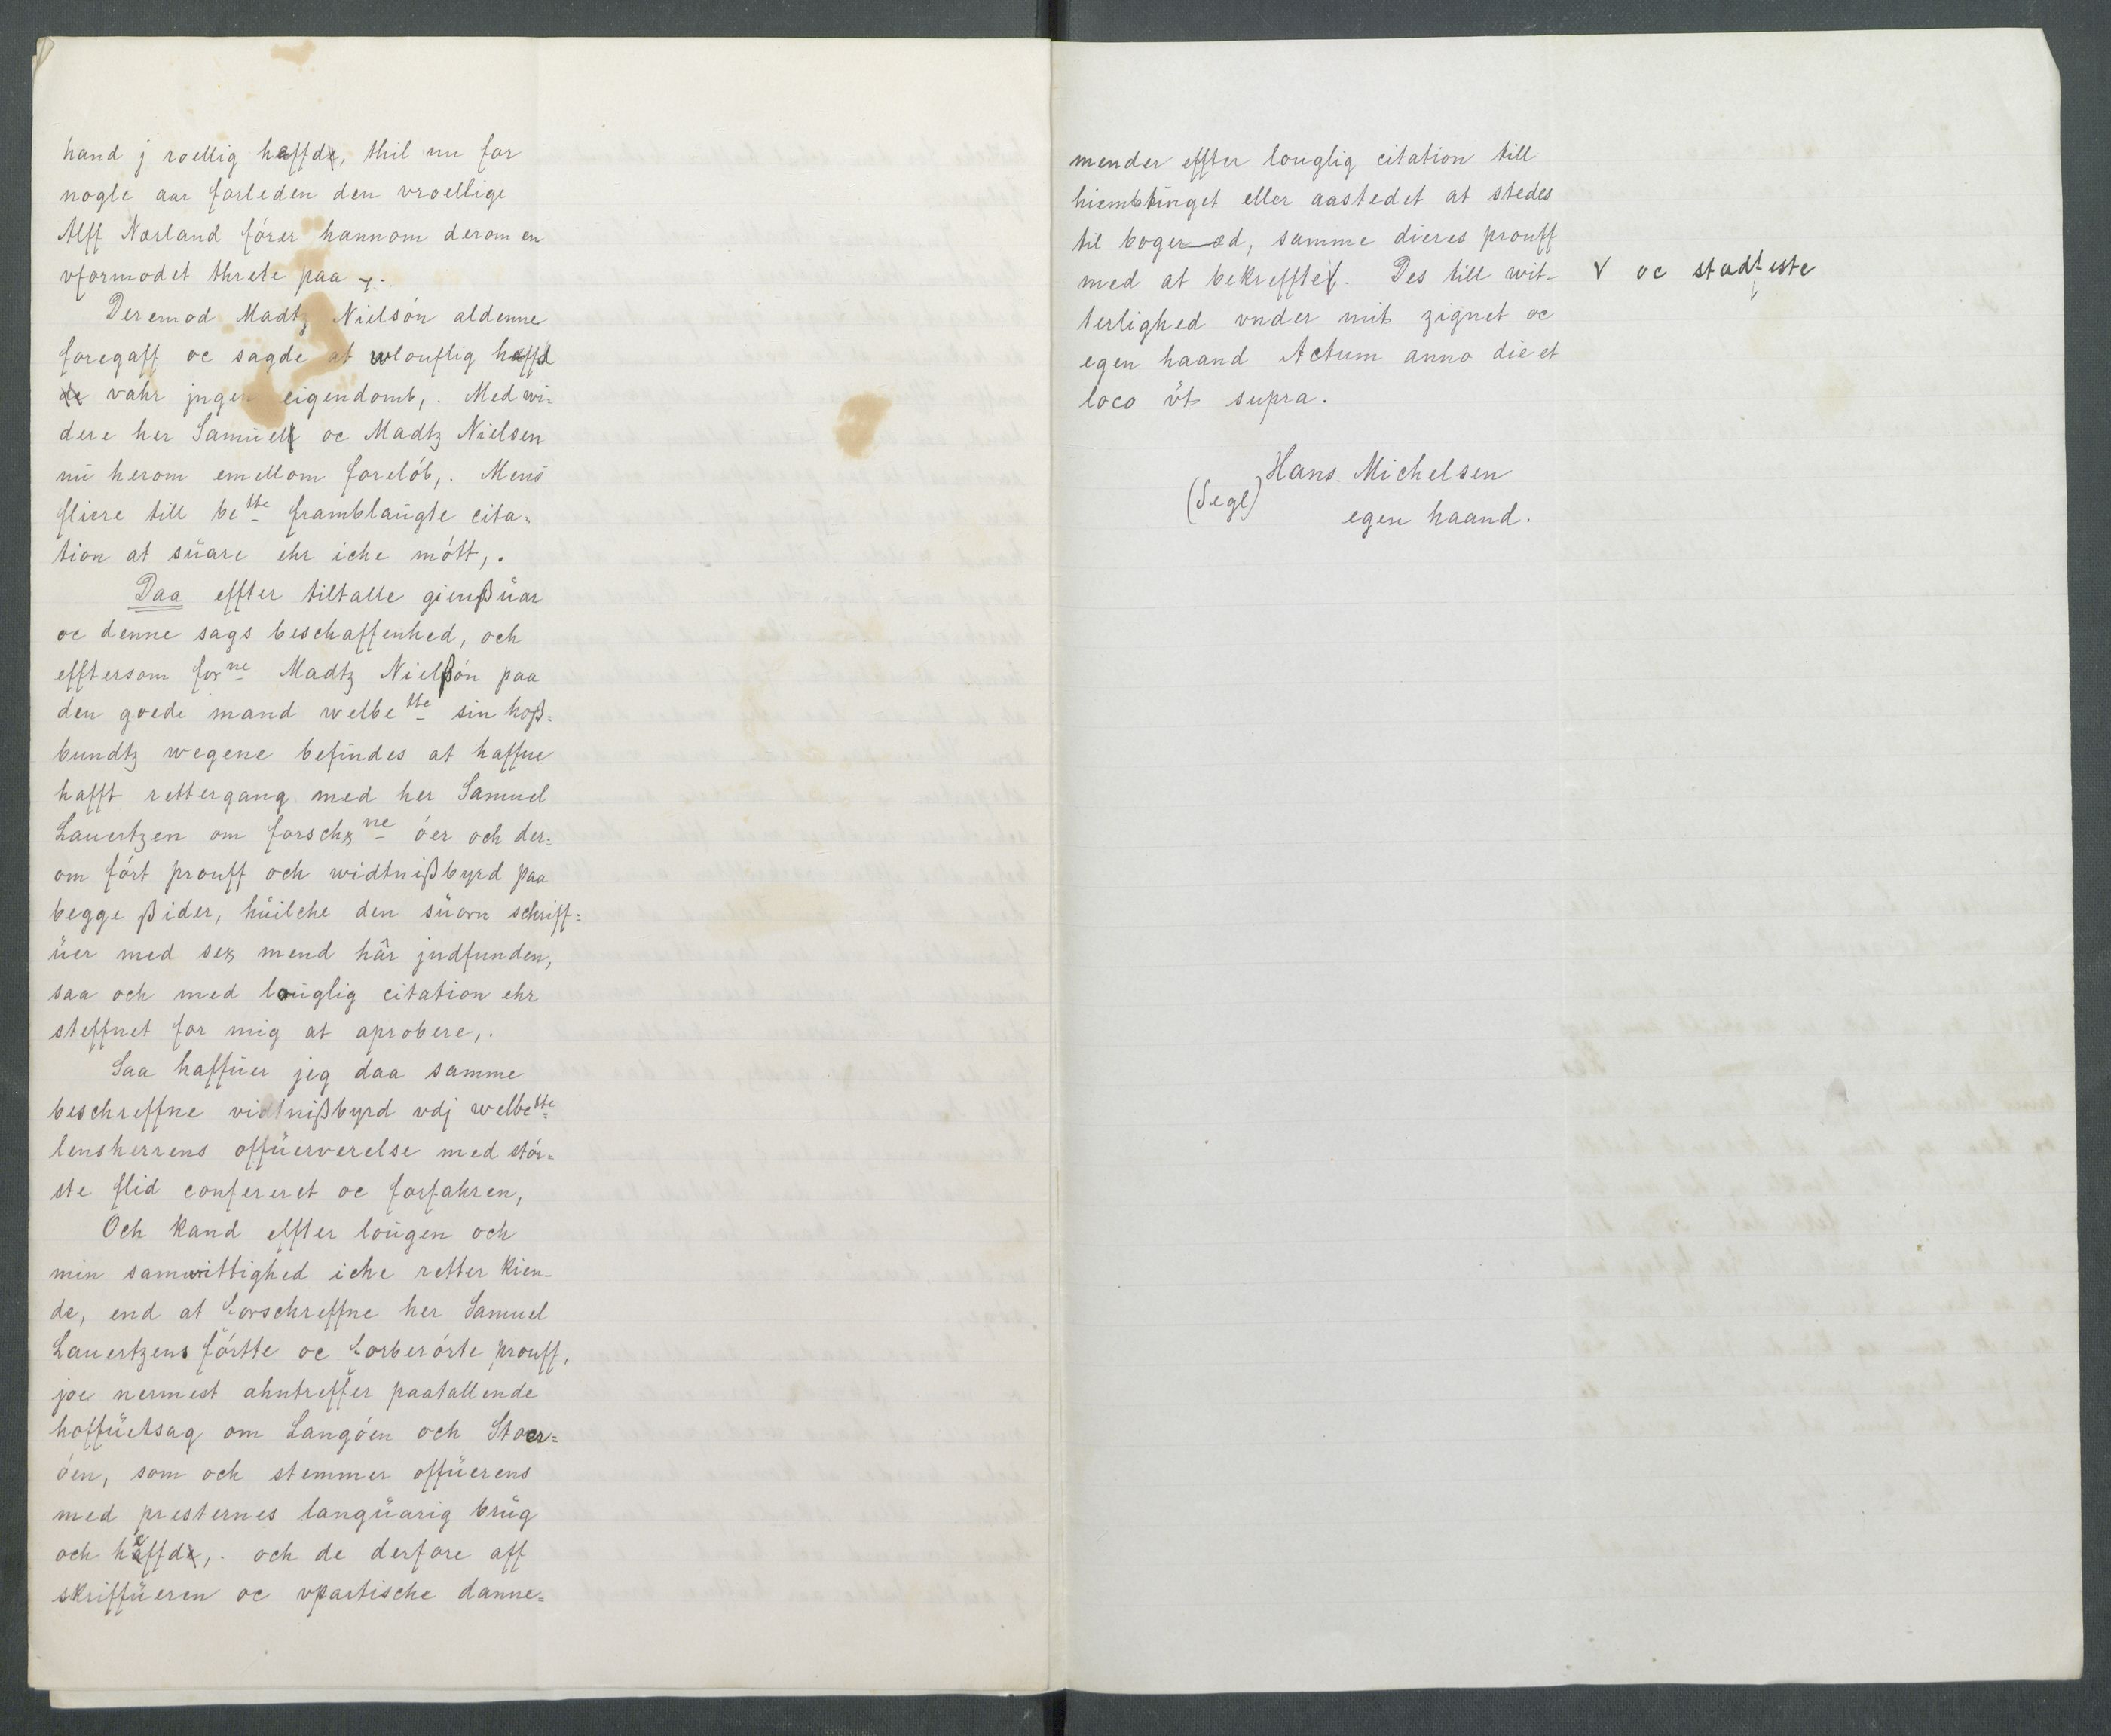 hand j roellig heffd, thil nu for
nogle aar forleden den vroellige
Alff Nærland fórer hannom derom en
vformodet threte paa ⁊.
Deremod Madtz Nielsón aldenne
foregaff oc sagde at wlouflig heffd
de vahr jngen eigendomb,. Med wi-
dere her Samüel oc Madtz Nielsen
nü herom emellom forelób,. Mens
fliere till be<sup>tte</sup> framblaügte cita=
tion at süare ehr iche mótt,.
Daa effter tiltalle gienßüar
oc denne sags beschaffenhed, och
efftersom for<sup>ne</sup> Madtz Nielßón paa
den goede mand welbe<sup>tte</sup> sin hoß=
bundtz wegene befindes at haffue
hafft rettergang med her Samuel
Lauertzen om forschr<sup>ne</sup> óer och der=
om fórt prouff och widtnißbyrd paa
begge ßider, hüilche den süorn schriff=
üer med sex mend hâr jndfunden,
saa och med loüglig citation ehr
steffnet for mig at aprobere,.
Saa haffüer jeg daa samme
beschreffne vidtnißbyrd vdj welbe<sup>tte</sup>
lensherrens offüerverelse med stór=
ste flid confereret oc forfahren,
Och kand effter loügen och
min samwittighed iche retter kien-
de, end at forschreffne her Samuel
Lauertzens fórtte oc forberórte prouff,
joe nermest ahntreffer paatallende
hoffüetsag om Langóen och Stoer=
óen, som och stemmer offüerens
med presternes langüarig brüg
och heffd,. och de derfore aff
skriffüeren oc vpartische danne=
mender effter loüglig citation till
hiembtinget eller aastedet at stedes
til boger æd, samme dieres prouff
med at bekreffte. Des till wit- ٧ oc stadfeste
terlighed vnder mit zignet oc
egen haand Actum anno die et
loco üt supra.
Hans Michelsen
(Segl) egen haand.